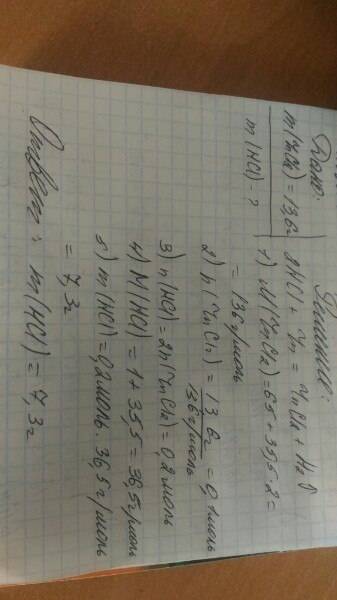 Дано:
m(ZnCl₂) = 13,6г
m(HCl) - ?
Решение:
2HCl + Zn = ZnCl₂ + H₂↑
1) M(ZnCl₂) = 65 + 35,5 · 2 =
= 136 г/моль
2) n(ZnCl₂) = 13,6г / 136 г/моль = 0,1 моль
3) n(HCl) = 2n(ZnCl₂) = 0,2 моль
4) M(HCl) = 1 + 35,5 = 36,5 г/моль
5) m(HCl) = 0,2 моль · 36,5 г/моль
= 7,3г
Ответ: m(HCl) = 7,3г